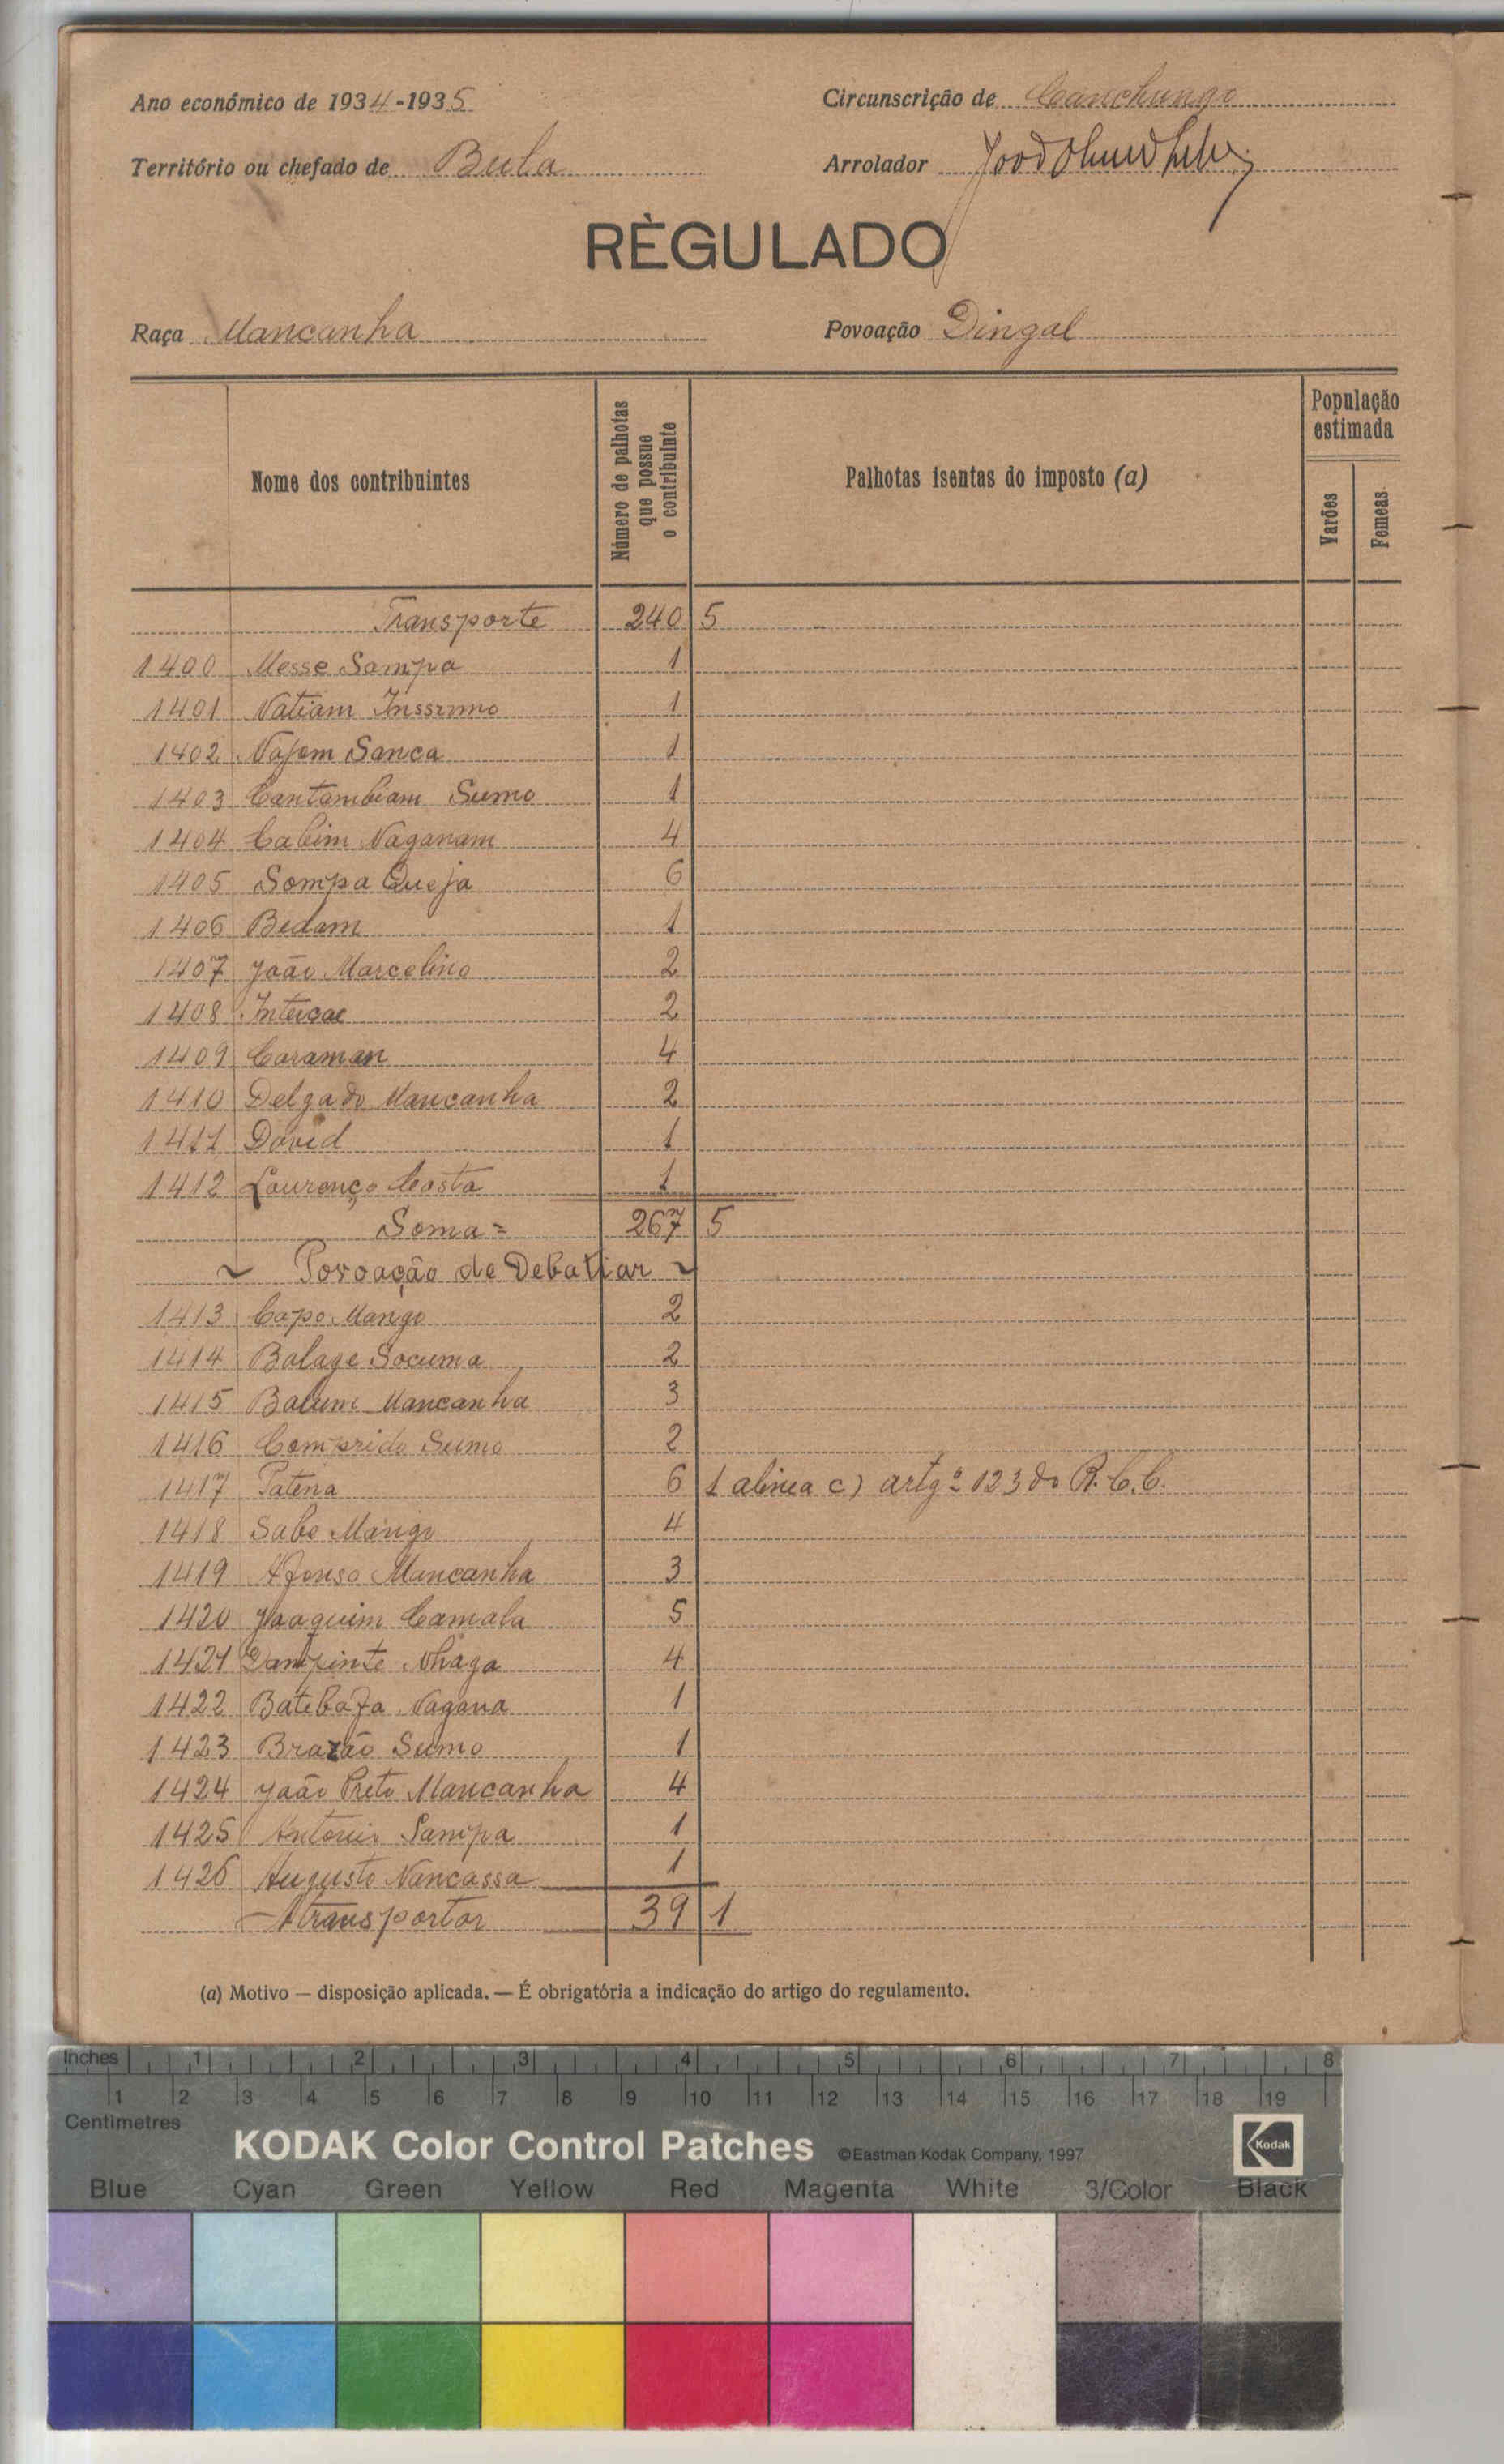 Ano económico de 1934-1935 Circunscrição de Canchungo
Território ou chefado de Bula Arrolador
RÈGULADO
Raça Mancanha Povoação Dingal
Nome dos contribuintes Número de palhotas que possue o contribuinte Palhotas isentas do imposto (a) População estimada Varões Femeas
Transporte 240 5
1400 Messe Sampa 1
1401 Natiam 1
1402 Najem Sanca 1
1403 Cantambiam Sumo 1
1404 Cabim Naganam 4
1405 Sompa Queja 6
1406 Bedam 1
1407 João Marcelino 2
1408 2
1409 Caraman 4
1410 Delgado Mancanha 2
1411 David 1
1412 Lourenço Costa 1
Soma = 267 5
~ Povoação de Debatiar ~
1413 Capo Mango 2
1414 Balage Socuma 2
1415 Mancanha 3
1416 Comprido Sumo 2
1417 Patena 6 1 alinea c) artgº 123 do R.C.C.
1418 Sabo Mango 4
1419 Afonso Mancanha 3
1420 Joaquim Camala 5
1421 Nhaga 4
1422 Batebafa Nagana 1
1423 Brazão Sumo 1
1424 João Preto Mancanha 4
1425 Antonio Sampa 1
1426 Augusto Nancassa 1
A transportar 39 1
(a) Motivo — disposição aplicada. — É obrigatória a indicação do artigo do regulamento.
Inches 1 2 3 4 5 6 7 8
1 2 3 4 5 6 7 8 9 10 11 12 13 14 15 16 17 18 19
Centimetres
KODAK Color Control Patches ©Eastman Kodak Company, 1997 Kodak
Blue Cyan Green Yellow Red Magenta White 3/Color Black